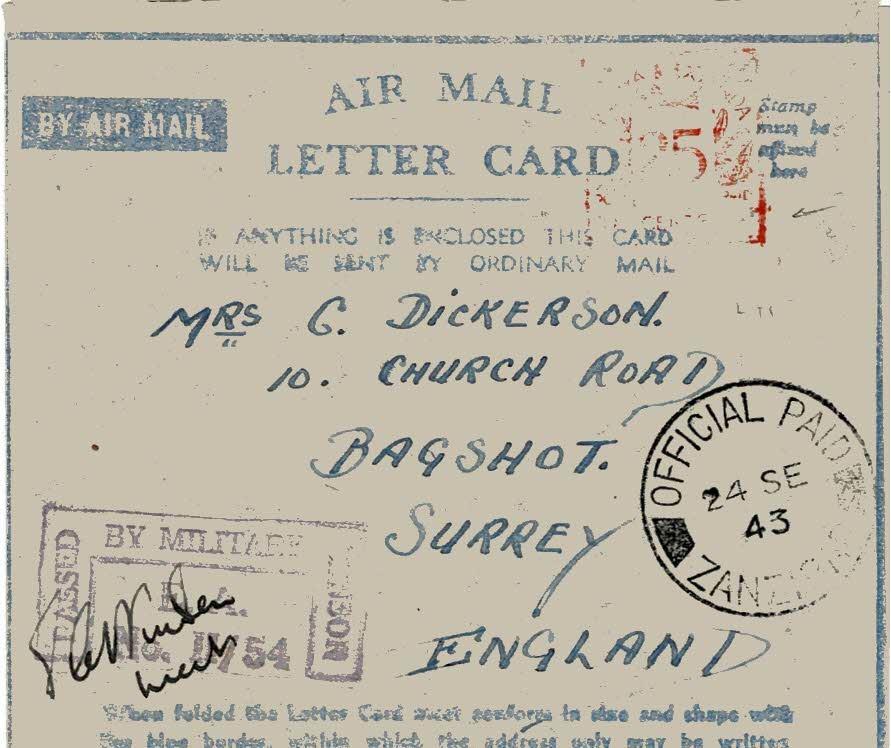 BY AIR MAIL
AIR MAIL
LETTER CARD
Stamp
must be
affixed
here
25
IF ANYTHING IS ENCLOSED THIS CARD
WILL BE SENT BY ORDINARY MAIL
MRS G. DICKERSON.
10. CHURCH ROAD
BAGSHOT.
SURREY
ENGLAND
OFFICIAL PAID
24 SE
43
ZANZIBAR
PASSED
BY MILITARY
CENSOR
E.A.
No. 54
When folded the Letter Card must conform in size and shape with
the blue border, within which the address only may be written